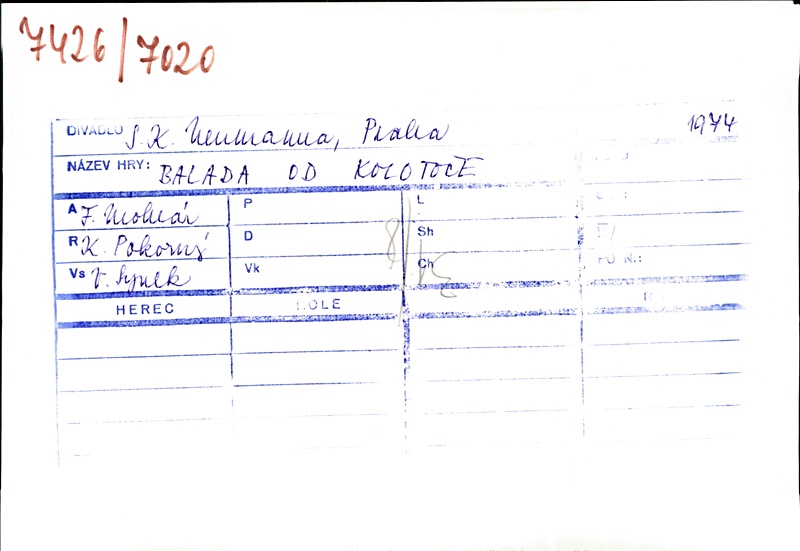 7426/7020
DIVADLO S. K. Neumanna, Praha 1974
NÁZEV HRY: BALADA OD KOLOTOČE
A F. Molnár P L
R K. Pokorný D Sh
Vs V. Synek Vk Ch
HEREC ROLE